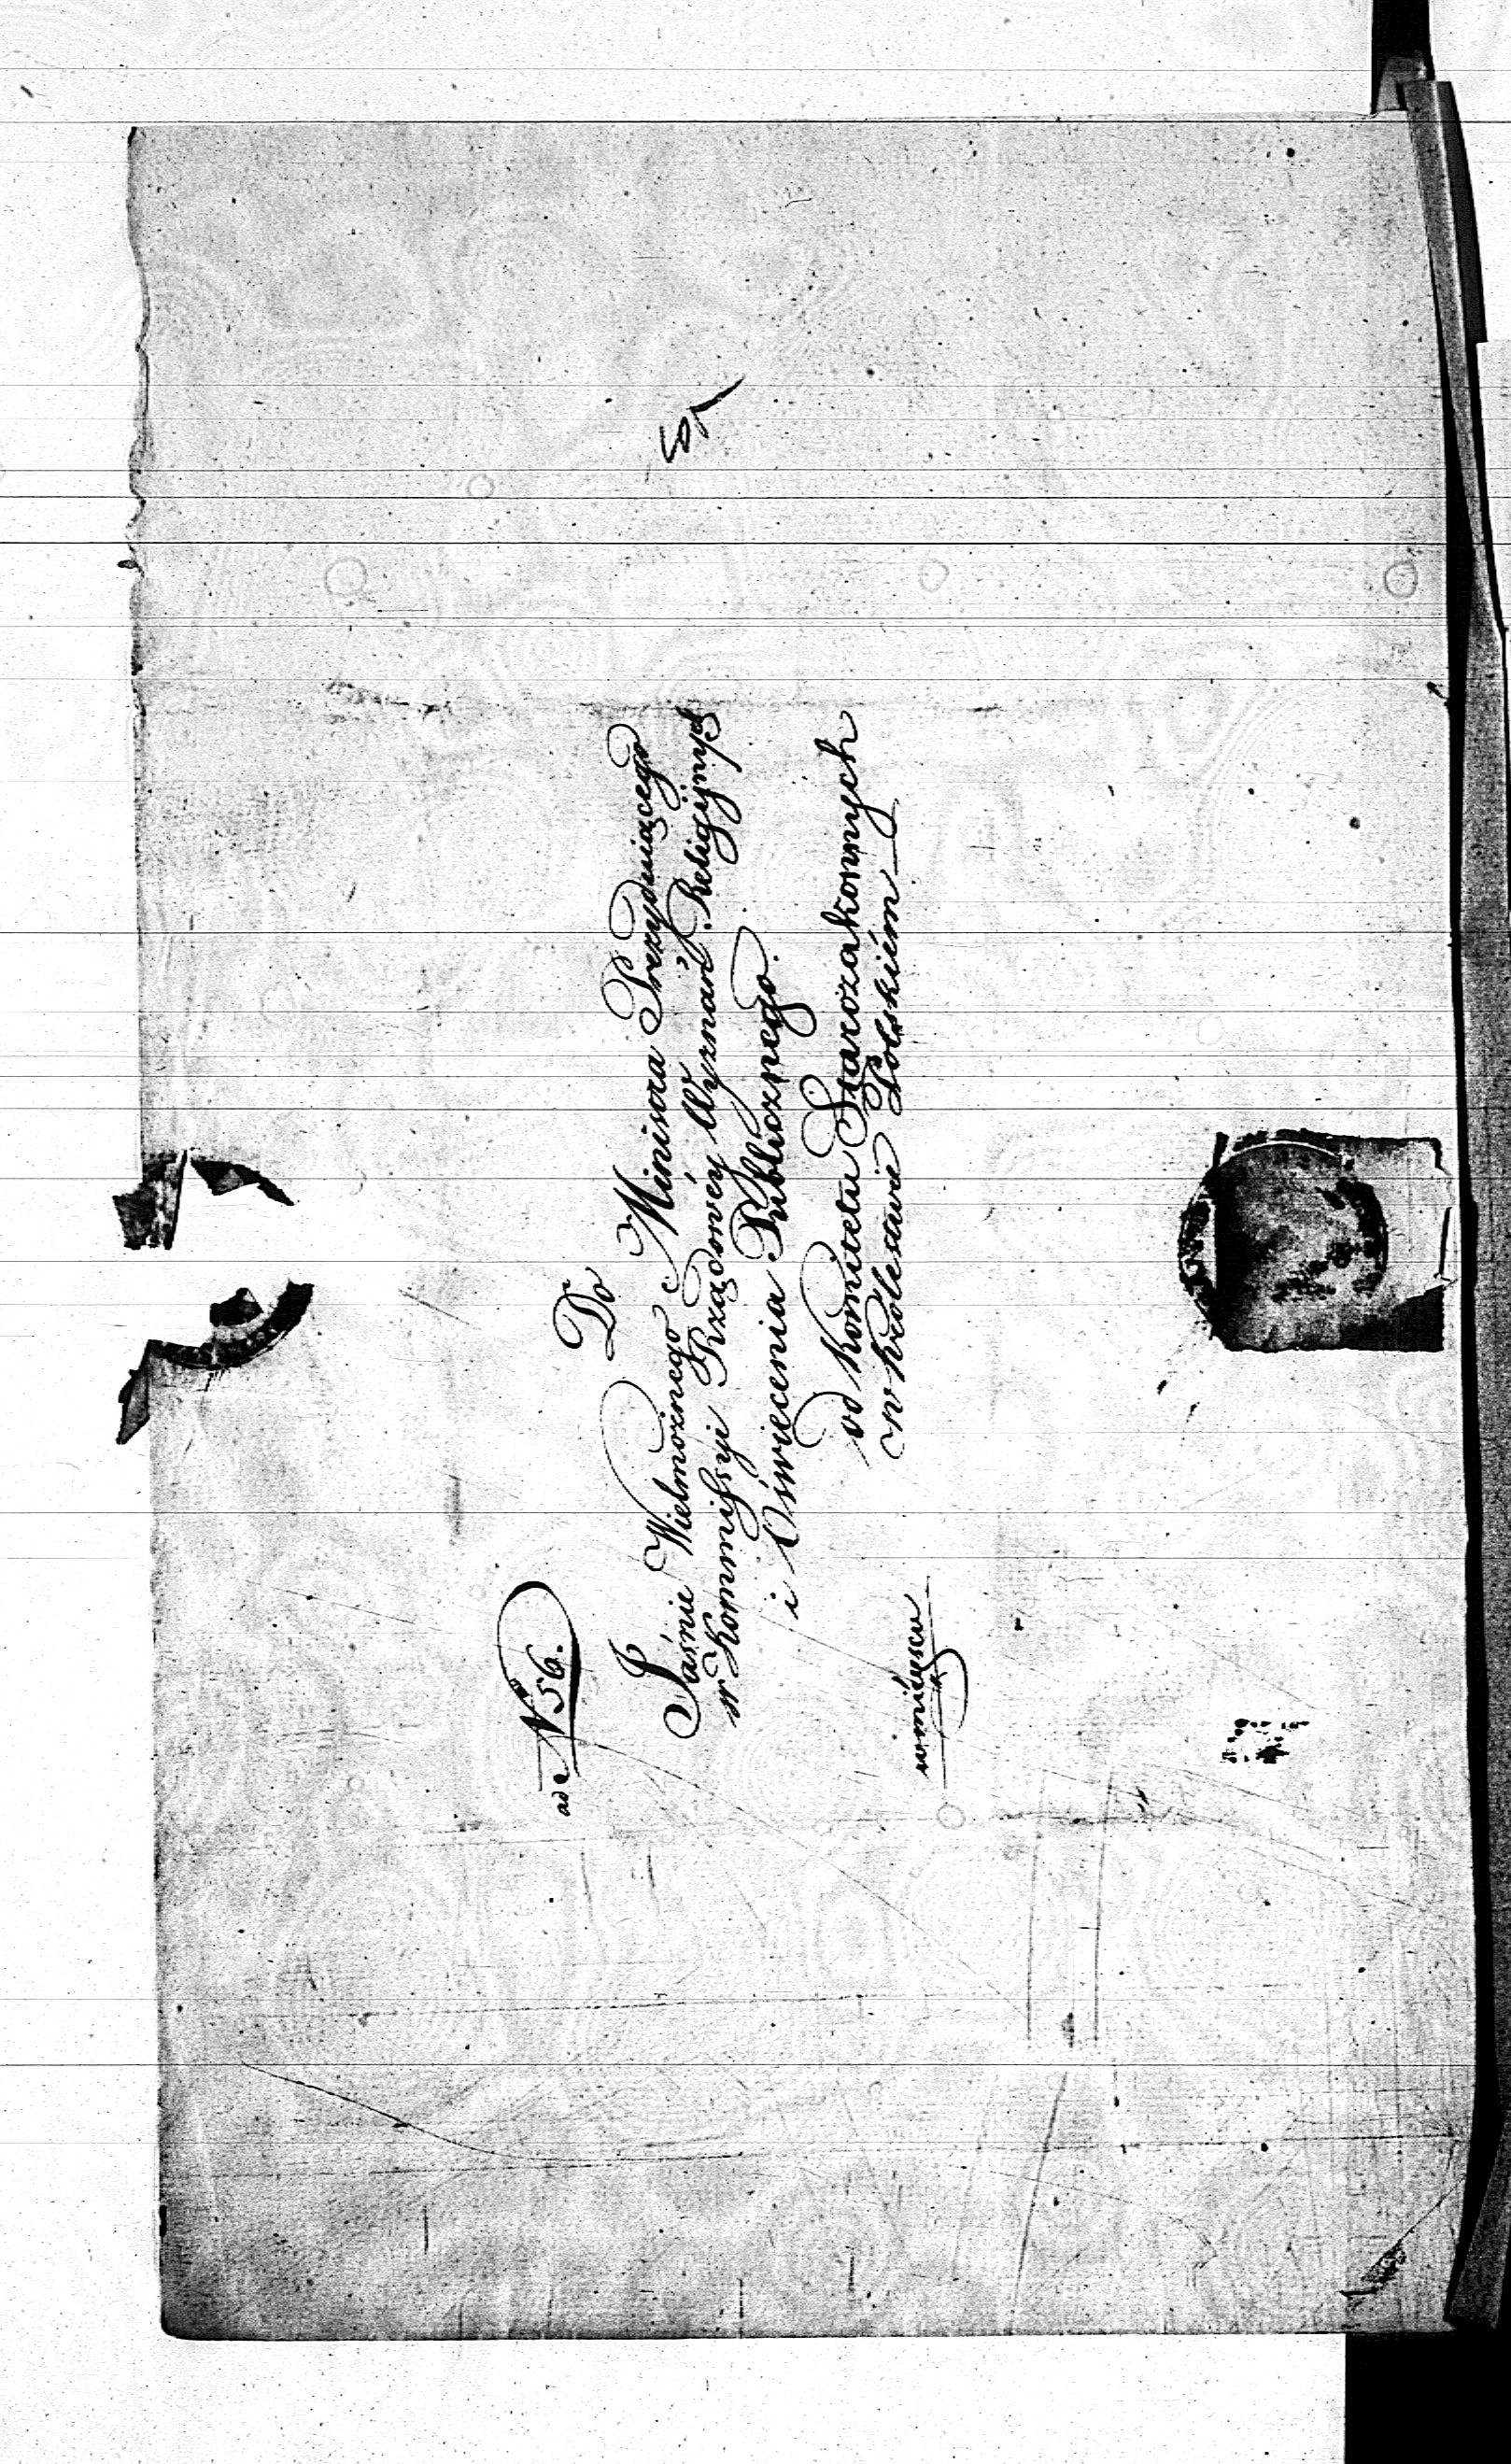 ad N 56.
Do
Jaśnie Wielmożnego Ministra Prezyduiącego
w Kommissyi Rządowéy Wyznań Religijnych
i Oświecenia Publicznego.
od Komitetu Starozakonnych
w Królestwie Polskiém
w mieyscu